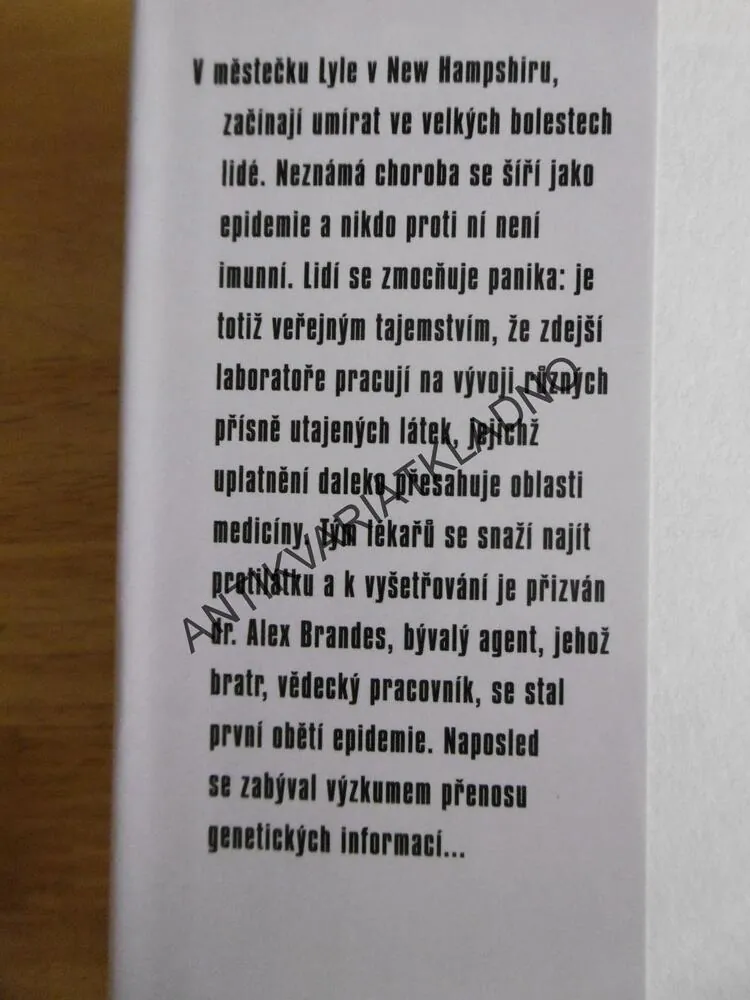 V městečku Lyle v New Hampshiru,
začínají umírat ve velkých bolestech
lidé. Neznámá choroba se šíří jako
epidemie a nikdo proti ní není
imunní. Lidí se zmocňuje panika: je
totiž veřejným tajemstvím, že zdejší
laboratoře pracují na vývoji různých
přísně utajených látek, jejichž
uplatnění daleko přesahuje oblasti
medicíny. Tým lékařů se snaží najít
protilátku a k vyšetřování je přizván
dr. Alex Brandes, bývalý agent, jehož
bratr, vědecký pracovník, se stal
první obětí epidemie. Naposled
se zabýval výzkumem přenosu
genetických informací...
ANTIKVARIATKLADNO